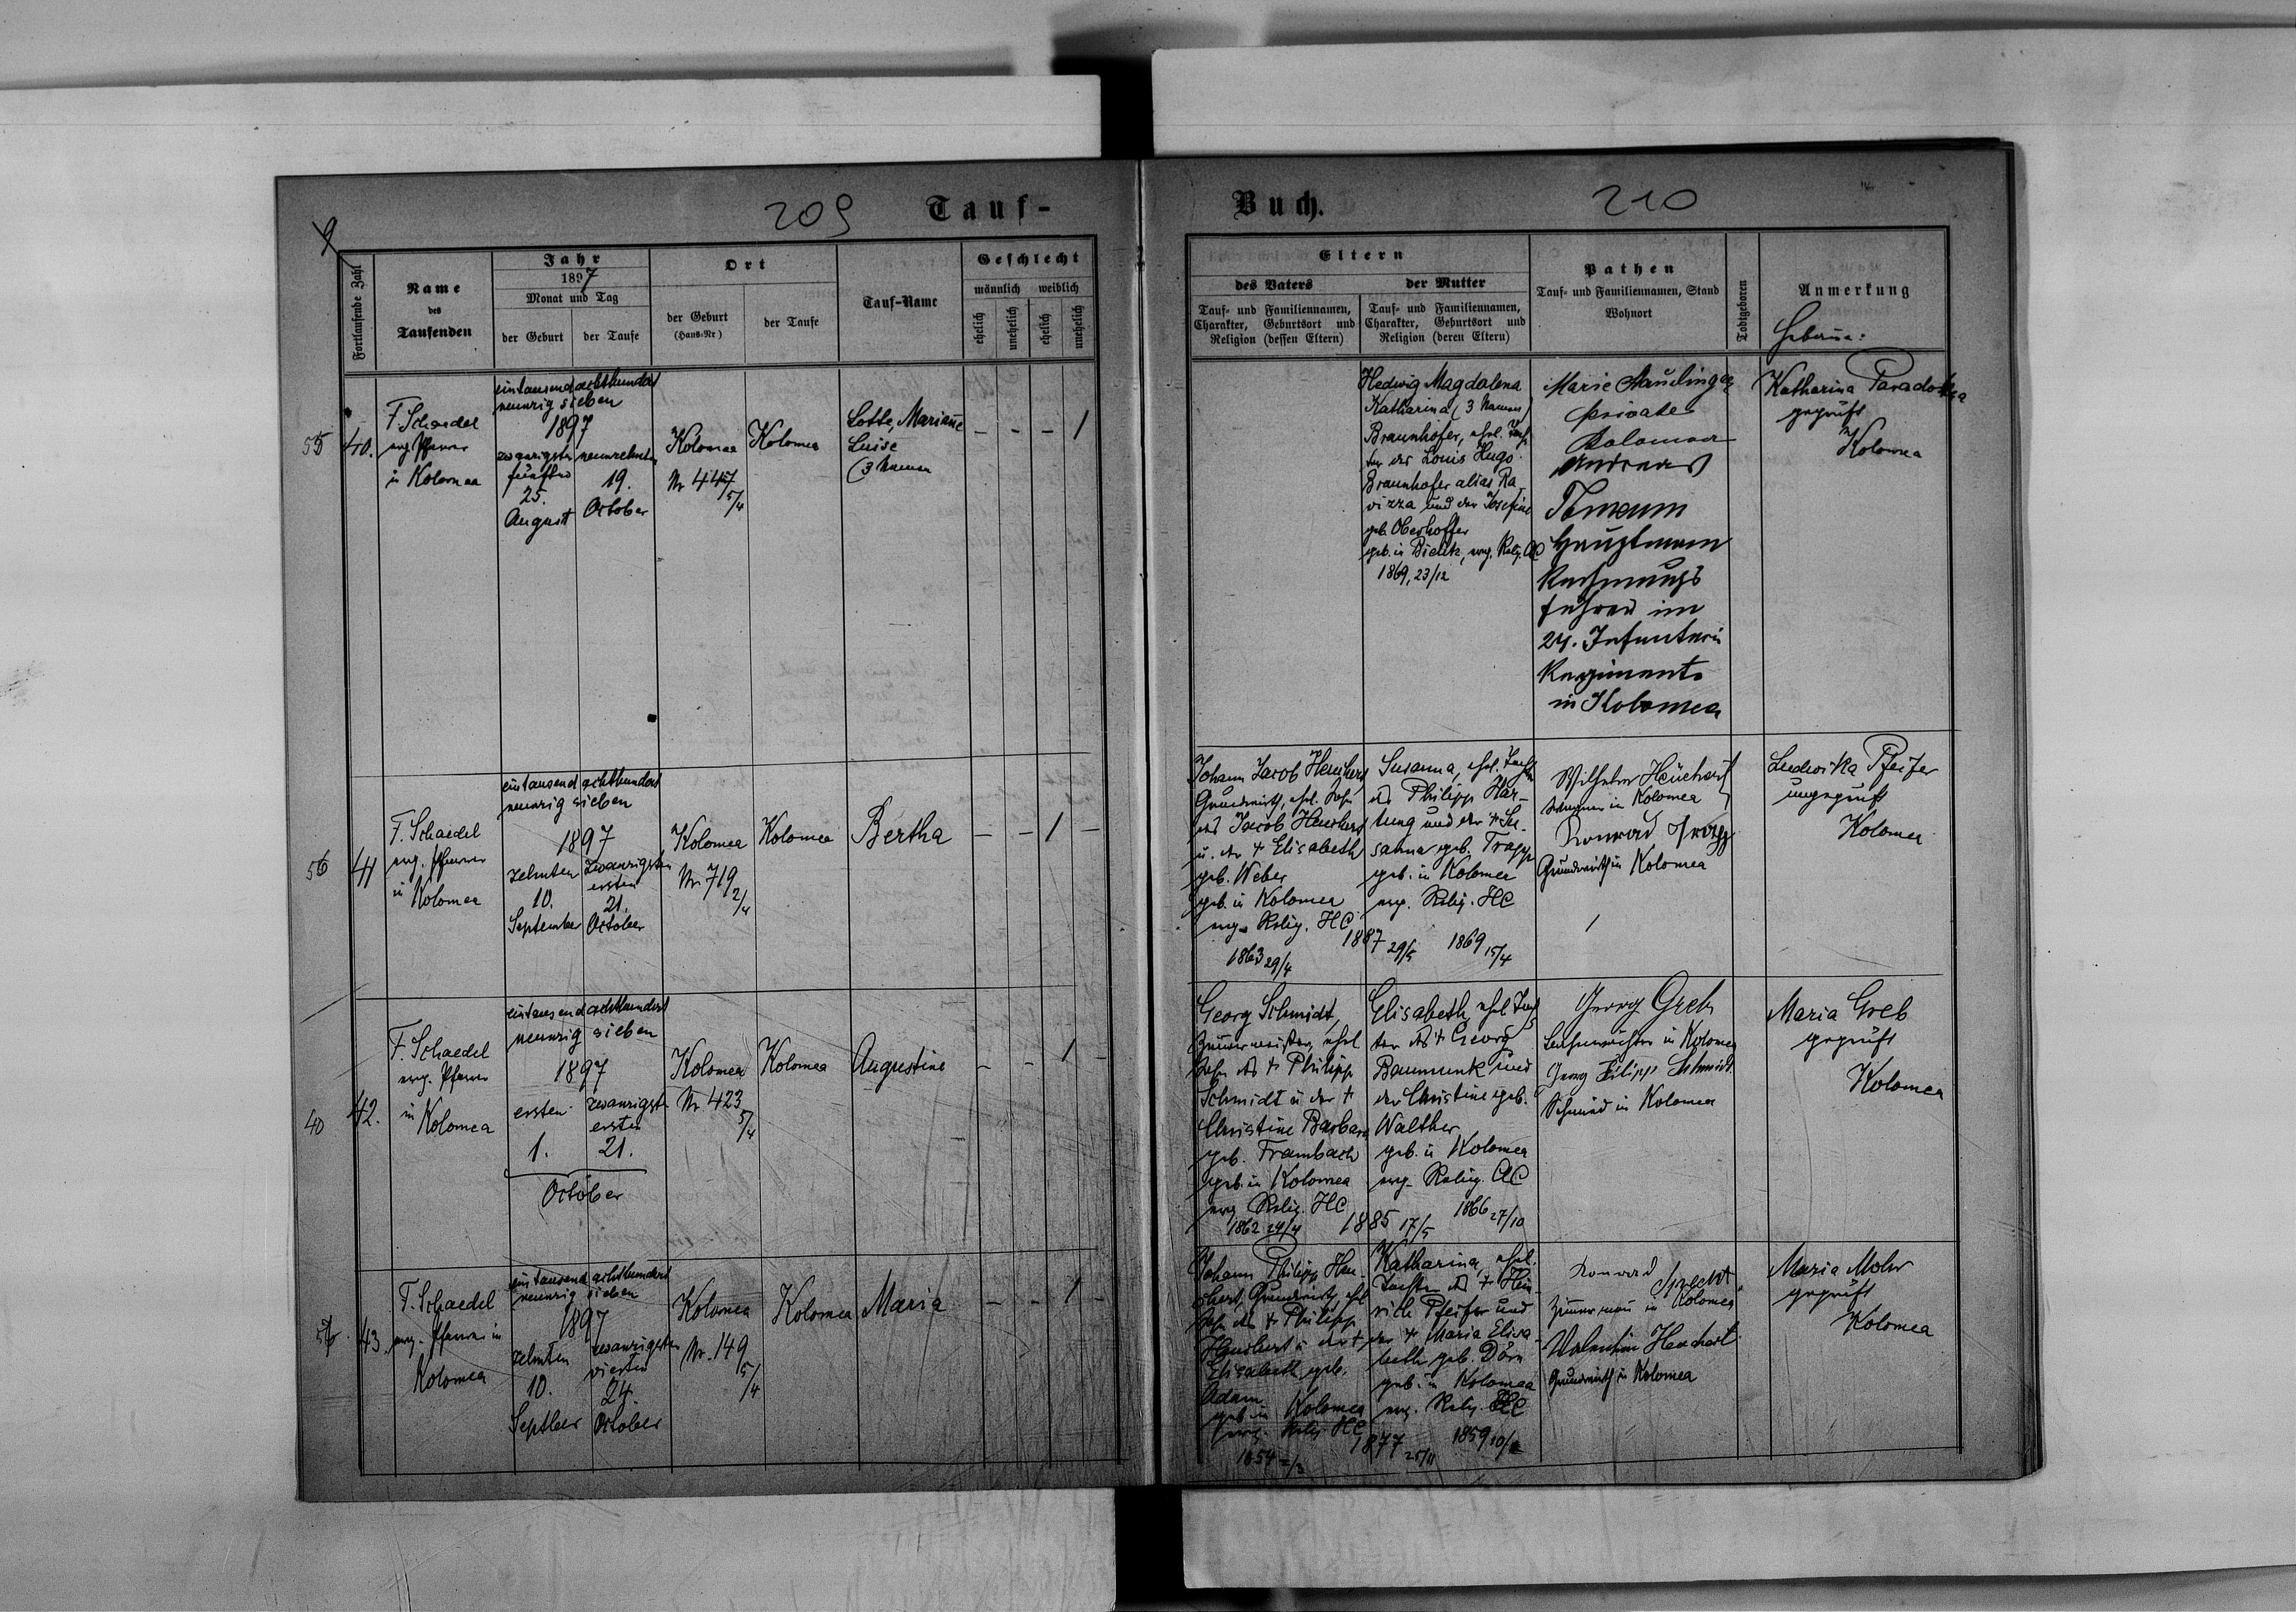 209 Tauf-
Buch. 210
Fortlaufende Zahl
Name
des
Taufenden
Jahr
1897
Monat und Tag
der Geburt
der Taufe
Ort
der Geburt
(Haus-Nr)
der Taufe
Tauf-Name
Geschlecht
männlich weiblich
ehelich
unehelich
ehelich
unehelich
Eltern
des Vaters
Tauf- und Familiennamen,
Charakter, Geburtsort und
Religion (dessen Eltern)
der Mutter
Tauf- und Familiennamen,
Charakter, Geburtsort und
Religion (deren Eltern)
Pathen
Tauf- und Familiennamen, Stand
Wohnort
Todtgeboren
Anmerkung
55
40.
F. Schaedel
evg. Pfarrer
in Kolomea
eintausend achthundert
neunzig sieben
1897
zwanzigsten
fünften
25.
August
neunzehnten
19.
October
Kolomea
Nr 447
5/4
Kolomea
Lotte, Mariane
Luise
(3 Namen
- - - 1
Hedwig Magdalena
Katharina (3 Namen)
Braunhofer, ehel. Toch
ter des Louis Hugo
Braunhofer alias Ra
vizza und der Josefine
geb. Oberhoffer
geb. in Bielitz, evg. Relig. AC
1869, 23/12
Marie
private
Kolomea
Andreas
Hauptmann
Rechnungs
führer im
24. Infanterie
Regimente
in Kolomea
Katharina
geprüft
Kolomea
56
41
F. Schaedel
evg. Pfarrer
in
Kolomea
eintausend achthundert
neunzig sieben
1897
zehnten
10.
September
zwanzigsten
ersten
21.
October
Kolomea
Nr. 719
2/4
Kolomea
Bertha
- - 1 -
Johann Jacob Heuchert
Grundwirth, ehel. Sohn
des Jacob Heuchert
u. der + Elisabeth
geb. Weber
geb. in Kolomea
evg. Relig. HC
1863 29/4
1887 29/5
Susanna, ehel. Tochter
des Philipp Har-
tung und der + Su-
sanna geb. Trapp
geb. in Kolomea
evg. Relig. HC
1869 15/4
Wilhelm Heuchert
in Kolomea
Konrad
Grundwirth in Kolomea
Ludwika Pfeifer
ungeprüft
Kolomea
40
42.
F. Schaedel
evg. Pfarrer
in
Kolomea
eintausend achthundert
neunzig sieben
1897
ersten
1.
zwanzigsten
ersten
21.
October
Kolomea
Nr. 423
5/4
Kolomea
Augustine
- - 1 -
Georg Schmidt,
Zimmermeister, ehel
Sohn des + Philipp
Schmidt u der +
Christine Barbara
geb. Frambach
geb. in Kolomea
evg Relig. HC
1862 24/4
1885 17/5
Elisabeth, ehel Toch
ter des + Georg
Baumunk und
der Christine geb.
Walther
geb. in Kolomea
evg. Relig. AC
1866 27/10
Georg Greb
in Kolomea
Georg Filipp Schmidt
Schmied in Kolomea
Maria Greb
geprüft
Kolomea
43.
F. Schaedel
evg. Pfarrer in
Kolomea
eintausend achthundert
neunzig sieben
1897
zehnten
10.
Septber
zwanzigsten
vierten
24.
October
Kolomea
Nr. 149
5/4
Kolomea
Maria
- - 1 -
Johann Philipp Heu-
chert, Grundwirth, ehel
Sohn des + Philipp
Heuchert u der +
Elisabeth geb.
Adam
geb in Kolomea
evg. Relig HC
1854 2/3
1877 25/11
Katharina, ehel.
Tochter des + Hein
rich Pfeifer und
der + Maria Elisa
beth geb. Dörn
geb. in Kolomea
evg. Relig. HC
1859
Konrad Specht
Zimmermann in Kolomea
Valentin Heuchert
Grundwirth in Kolomea
Maria Mohr
geprüft
Kolomea